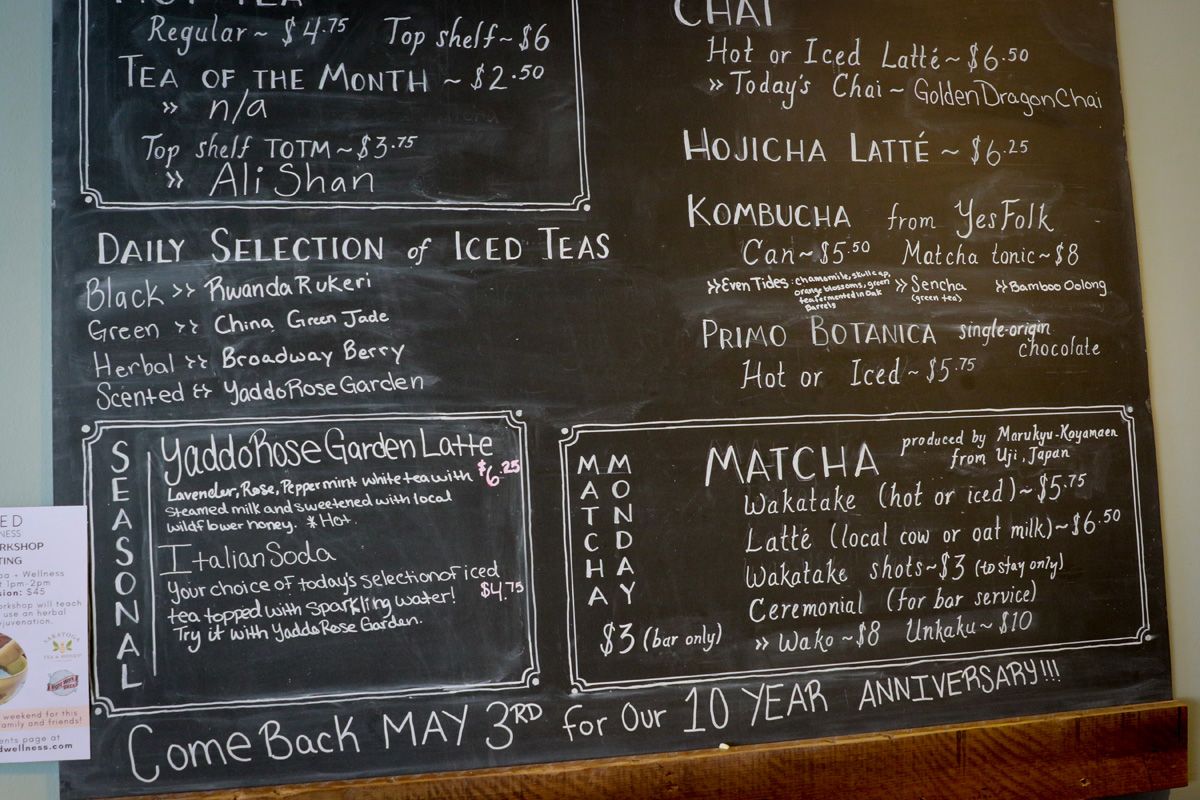 HOT TEA
Regular ~ $4.75 Top shelf ~ $6
TEA OF THE MONTH ~ $2.50
» n/a
Top shelf TOTM ~ $3.75
» Ali Shan
DAILY SELECTION of ICED TEAS
Black >> Rwanda Rukeri
Green >> China Green Jade
Herbal >> Broadway Berry
Scented >> Yaddo Rose Garden
SEASONAL
Yaddo Rose Garden Latte
Lavender, Rose, Peppermint white tea with $6.25
steamed milk and sweetened with local
wildflower honey. *Hot.
Italian Soda
Your choice of today's selection of iced
tea topped with sparkling water! $4.75
Try it with Yaddo Rose Garden.
CHAI
Hot or Iced Latté ~ $6.50
» Today's Chai ~ Golden Dragon Chai
HOJICHA LATTÉ ~ $6.25
KOMBUCHA from YesFolk
Can ~ $5.50 Matcha tonic ~ $8
» Even Tides: chamomile, skullcap,
orange blossoms, green
tea fermented in Oak
Barrels
» Sencha
(green tea)
» Bamboo Oolong
PRIMO BOTANICA single-origin
chocolate
Hot or Iced ~ $5.75
MATCHA
MONDAY
$3 (bar only)
MATCHA produced by Marukyu-Koyamaen
from Uji, Japan
Wakatake (hot or iced) ~ $5.75
Latté (local cow or oat milk) ~ $6.50
Wakatake shots ~ $3 (to stay only)
Ceremonial (for bar service)
» Wako ~ $8 Unkaku ~ $10
Come Back MAY 3RD for Our 10 YEAR ANNIVERSARY!!!
ED
NESS
ORKSHOP
TING
pa + Wellness
t 1pm-2pm
sion: $45
orkshop will teach
use an herbal
ejuvenation.
SARATOGA
weekend for this
family and friends!
ents page at
dwellness.com